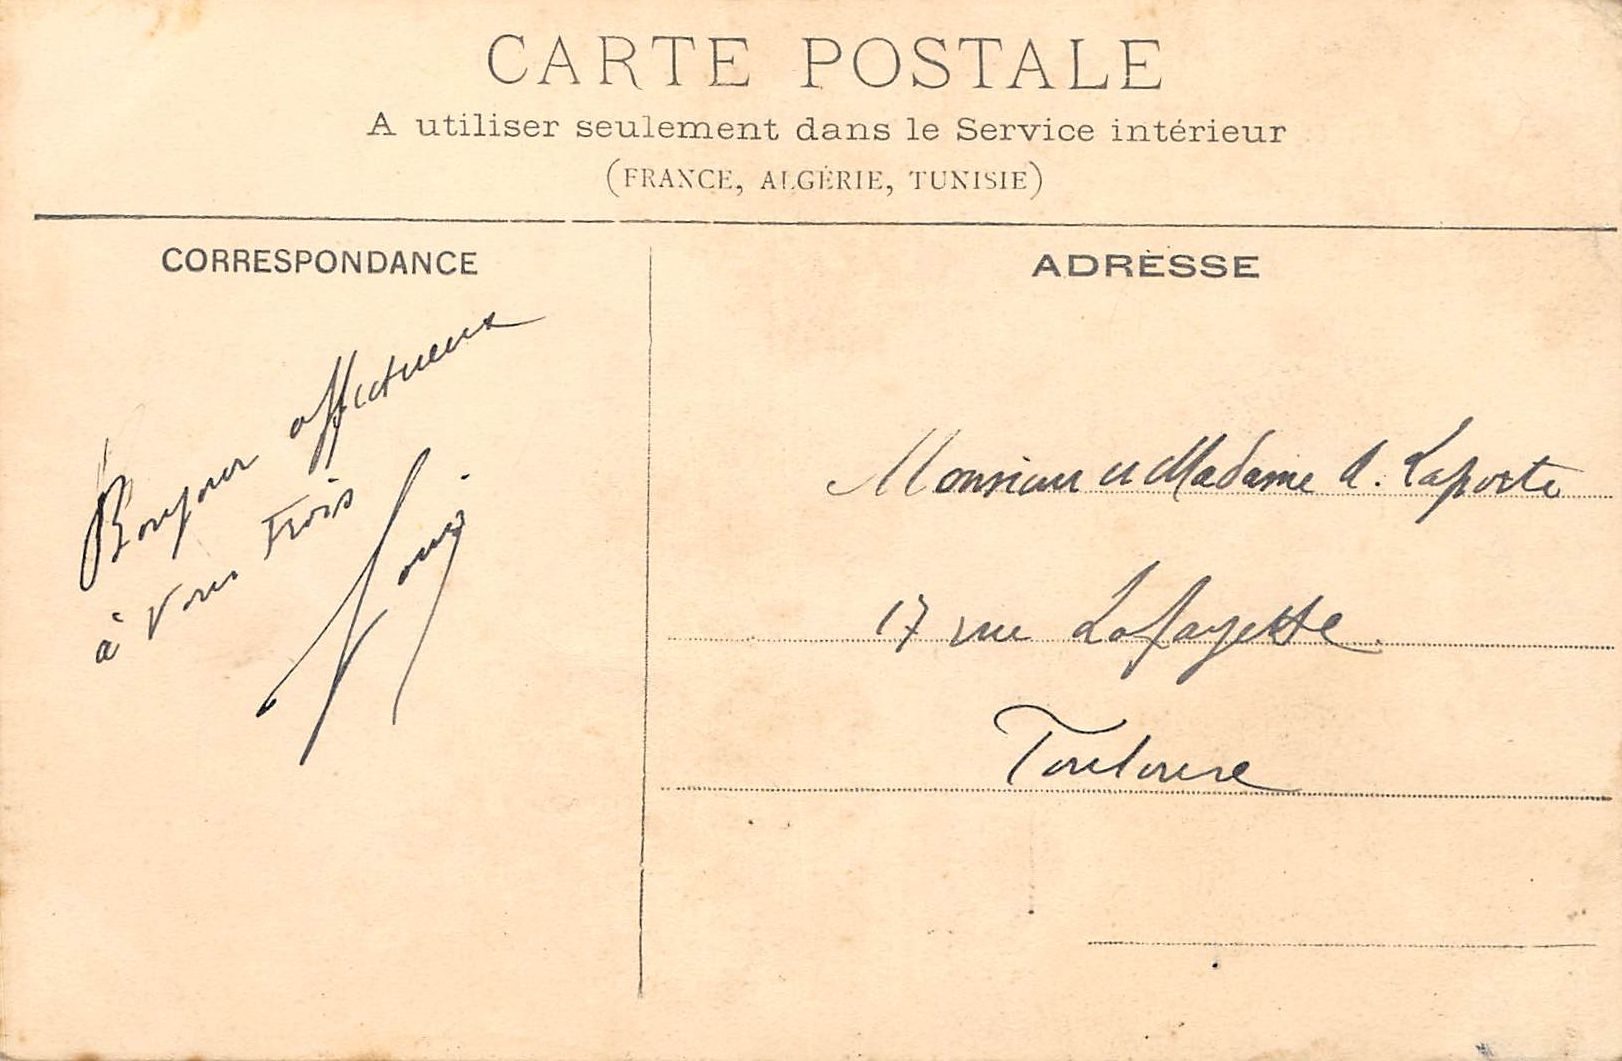 CARTE POSTALE
A utiliser seulement dans le Service intérieur
(FRANCE, ALGÉRIE, TUNISIE)
CORRESPONDANCE
Bonjour affectueux
à vous Trois
Louis
ADRESSE
Monsieur et Madame A. Laporte
17 rue Lafayette
Toulouse